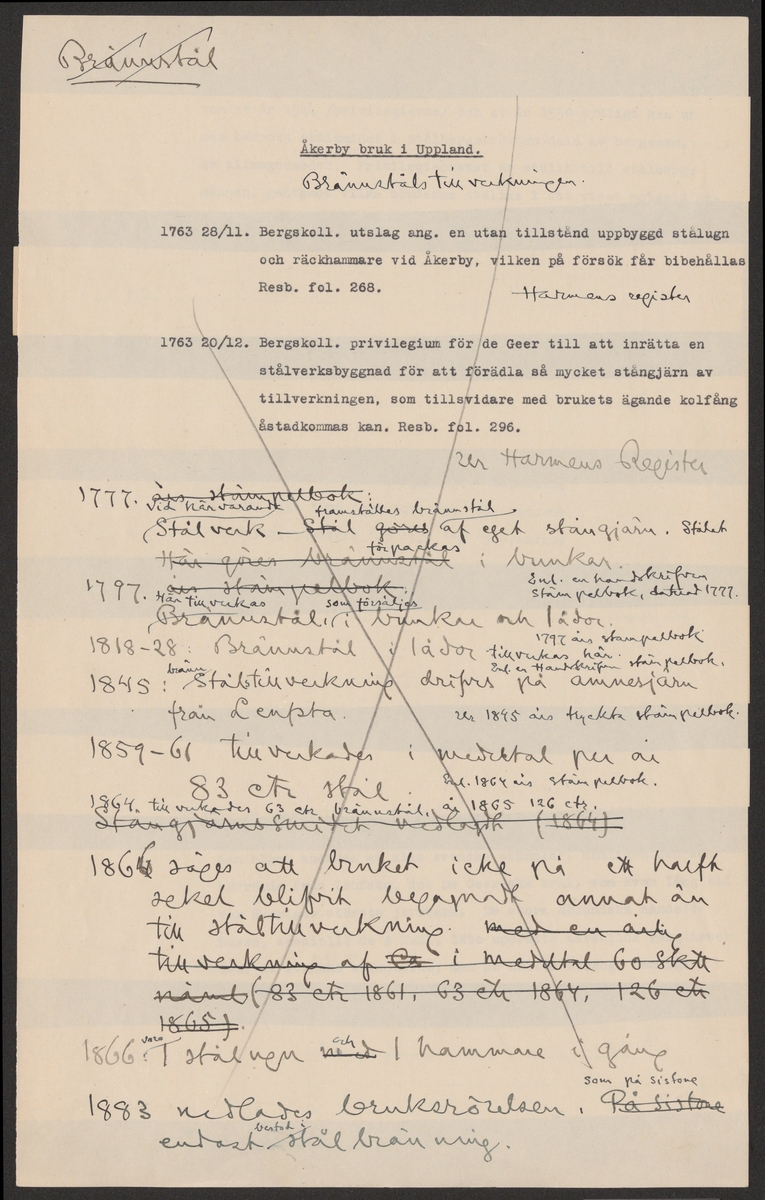 Brännstål
Åkerby bruk i Uppland.
Brännstålstillverkningen.
1763 28/11. Bergskoll. utslag ang. en utan tillstånd uppbyggd stålugn
och räckhammare vid Åkerby, vilken på försök får bibehållas
Resb. fol. 268.
Harmens register
1763 20/12. Bergskoll. privilegium för de Geer till att inrätta en
stålverksbyggnad för att förädla så mycket stångjärn av
tillverkningen, som tillsvidare med brukets ägande kolfång
åstadkommas kan. Resb. fol. 296.
Harmens Register
1777. års stämpelbok:
vid härvarande framställes brännstål
Stålverk Stål göres af eget stångjärn. Stålet
förpackas
Här göres brännstål i bunkar.
Enl. en handskrifven
stämpelbok, daterad 1777.
1797. års stämpelbok.
Här tillverkas som försäljes
Brännstål, i bunkar och lådor.
1797 års stämpelbok
1818-28: Brännstål i lådor tillverkas här.
Enl. en Handskrifven stämpelbok.
bränn
1845: Ståltillverkning drifves på ämnesjärn
från Leufsta. 1845 års tryckta stämpelbok.
1859-61 tillverkades i medeltal per år
83 ctr stål. Enl. 1864 års stämpelbok.
1864. tillverkades 63 ctr brännstål, år 1865 126 ctr.
Stångjärnssmidet nedlagdt (1864)
1866 säges att bruket icke på ett halft
sekel blifvit begagnadt annat än
till ståltillverkning. med en årlig
tillverkning af i medeltal 60 sktt
näml (83 ctr 1861, 63 ctr 1864, 126 ctr
1865).
voro och
1866: 1 stålugn med 1 hammare i gång
som på sistone
1883 nedlades bruksrörelsen. På sistone
bestod i
endast stålbränning.